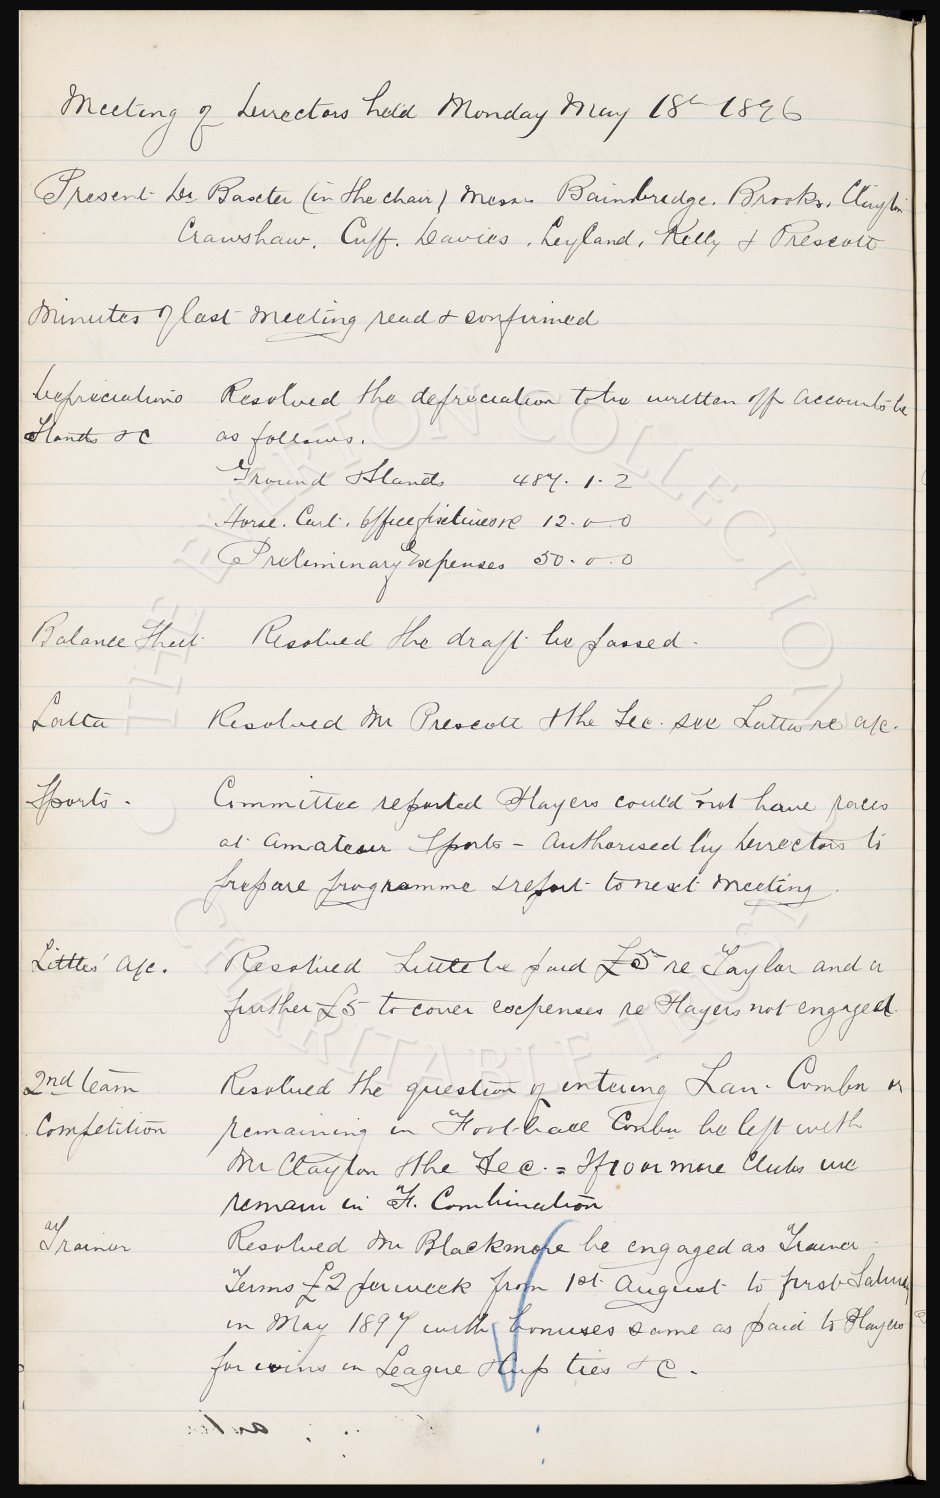 Meeting of Directors held Monday May 18th 1896
Present Dr Baxter (in the chair) Messrs Bainbridge, Brooks, Clayton
Crawshaw, Cuff, Davies, Leyland, Kelly & Prescott
Minutes of last meeting read & confirmed
Depreciations Resolved the depreciation to be written off accounts be
Stands &c as follows.
Ground & Stands 487. 1. 2
Horse, Cart, Office fixtures &c 12. 0. 0
Preliminary Expenses 50. 0. 0
Balance Sheet Resolved the draft be passed.
Latta Resolved Mr Prescott & the Sec. see Latta re a/c.
Sports. Committee reported Players could not have races
at Amateur Sports - Authorised by Directors to
prepare programme & report to next meeting.
Littles' a/c. Resolved Little be paid £5 re Taylor and a
further £5 to cover expenses re Players not engaged
2nd team Resolved the question of entering Lan. Combn or
Competition remaining in Football Combn be left with
Mr Clayton & the Sec. = If 10 or more Clubs we
remain in F. Combination
Trainer Resolved Mr Blackmore be engaged as Trainer
Terms £2 per week from 1st August to first Saturday
in May 1897 with bonuses same as paid to Players
for wins in League & Cup ties &c.
THE EVERTON COLLECTION
CHARITABLE TRUST